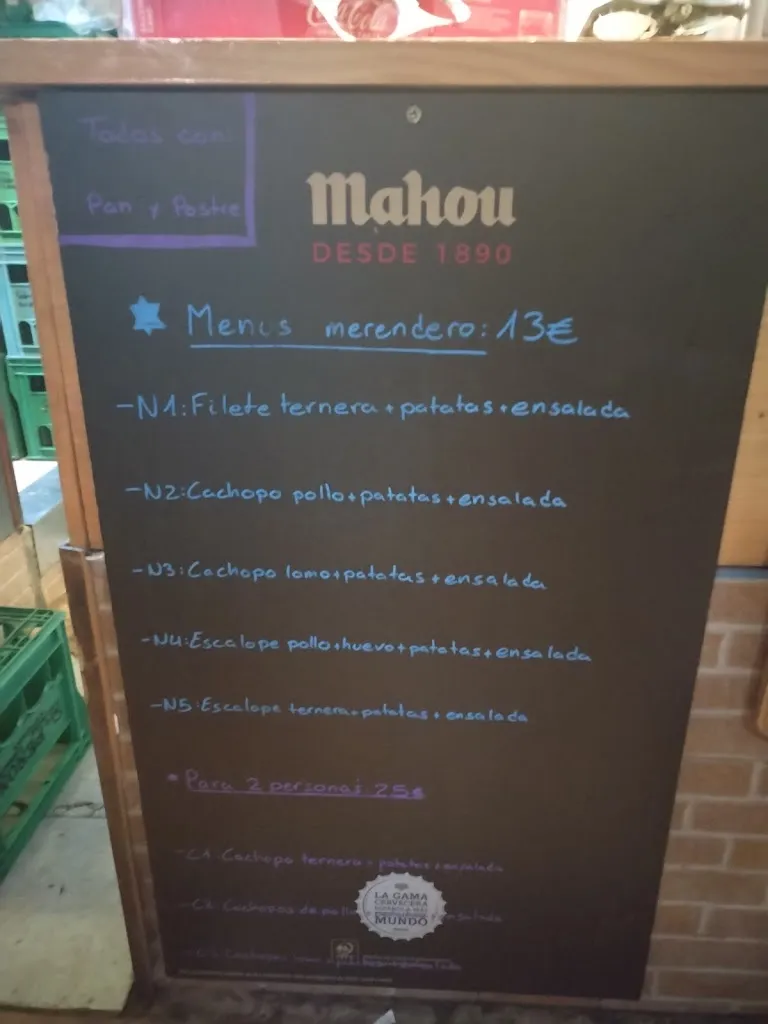 Coca-Cola
Todos con
Pan y Postre
Mahou
DESDE 1890
Menus merendero: 13€
-N1: Filete ternera + patatas + ensalada
-N2: Cachopo pollo + patatas + ensalada
-N3: Cachopo lomo + patatas + ensalada
-N4: Escalope pollo + huevo + patatas + ensalada
-N5: Escalope ternera + patatas + ensalada
Para 2 personas: 25€
-C1: Cachopo ternera + patatas + ensalada
-C2: Cachopos de pollo ensalada
LA GAMA
CERVECERA
MUNDO